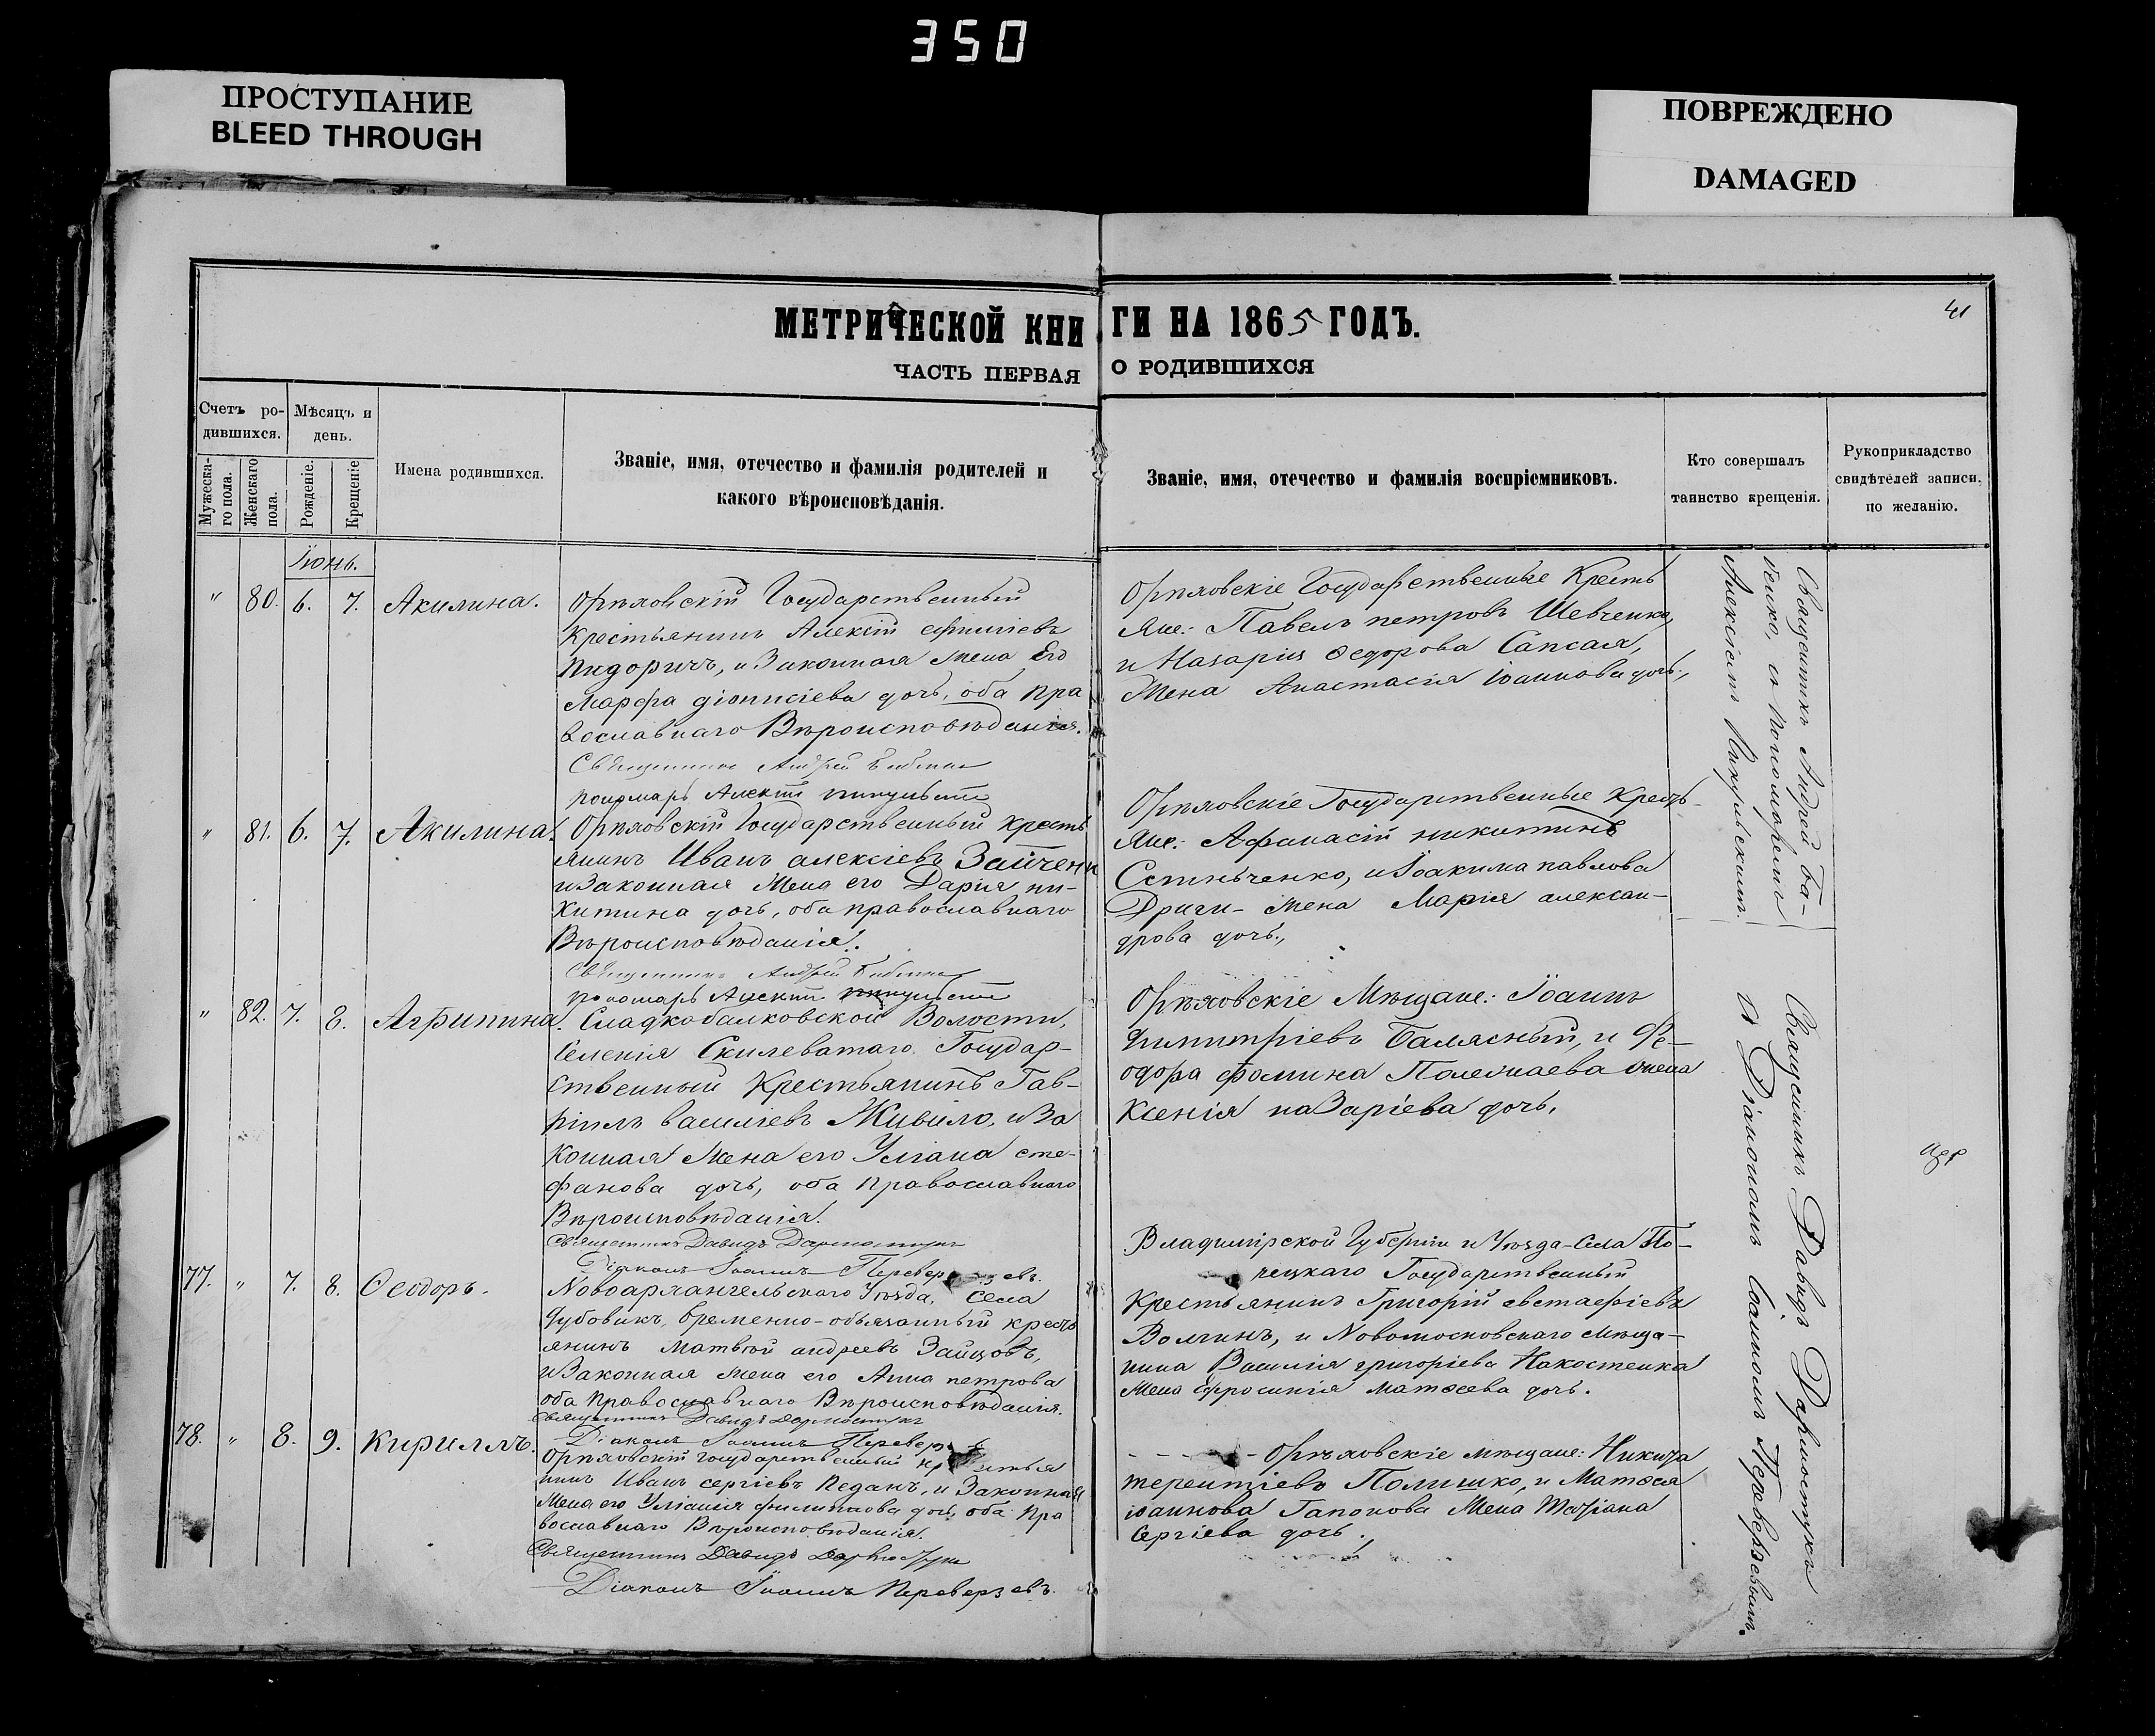 350
ПРОСТУПАНИЕ
BLEED THROUGH
ПОВРЕЖДЕНО
DAMAGED
41
МЕТРИЧЕСКОЙ КНИГИ НА 1865 ГОДЪ.
ЧАСТЬ ПЕРВАЯ О РОДИВШИХСЯ
Счетъ ро-
дившихся.
Мѣсяцъ и
день.
Мужеска-
го пола.
Женскаго
пола.
Рожденіе.
Крещеніе
Имена родившихся.
Званіе, имя, отечество и фамилія родителей и
какого вѣроисповѣданія.
Званіе, имя, отечество и фамилія воспріемниковъ.
Кто совершалъ
таинство крещенія.
Рукоприкладство
свидѣтелей записи.
по желанію.
Іюнь.
" 80. 6. 7. Акилина.
Орѣховскій Государственный
Крестьянинъ Алексій
Пидоричъ, и Законная Жена Его
Марфа діонисіева дочь, оба Пра
вославнаго Вѣроисповѣданія.
Священникъ Андрей
пономарь Алексій
Орѣховскіе Государственные Кресть
яне: Павелъ петровъ Шевченко,
и Назарія Ѳедорова Сапсая,
Жена Анастасія іоаннова дочь.,
Священникъ Андрей Ба-
бенко, съ пономаремъ
Алексіемъ
" 81. 6. 7. Акилина.
Орѣховскій Государственный Кресть
янинъ Иванъ алексіевъ Зайченк
и Законная Жена его Дарія ни-
китина дочь, оба православнаго
Вѣроисповѣданія.
Священникъ Андрей
пономарь Алексій
Орѣховскіе Государственные Кресть-
яне: Афанасій никитинъ
и Іоакима павлова
Дриги- Жена Марія алексан-
дрова дочь.,
" 82. 7. 8. Агрипина.
Сладкобалковской Волости,
Селенія Скилеватаго Государ-
ственный Крестьянинъ Гав-
ріилъ василіевъ Живило, и За
конная Жена его Уліана сте-
фанова дочь, оба Православнаго
Вѣроисповѣданія.
Священникъ Давидъ Дармостукъ
Діаконъ Іоаннъ Переверзевъ.
Орѣховскіе Мѣщане: Іоаннъ
Димитріевъ Балясный, и Фе-
одора фомина Полежаева жена
Ксенія наЗаріева дочь,
Священникъ Давидъ Дармостукъ
съ Діакономъ Іоанномъ Переверзевымъ.
77. " 7. 8. Ѳеодоръ.
Новоархангельскаго Уѣзда, Села
Дубовикъ, временно-обязанный кресть
янинъ Матвѣй андреевъ Зайцовъ,
и Законная жена его Анна петрова
оба Православнаго Вѣроисповѣданія.
Священникъ Давидъ Дармостукъ
Діаконъ Іоаннъ Перевер
Владимірской Губерніи и Уѣзда-Села По-
рецкаго Государственный
Крестьянинъ Григорій евстафіевъ
Волчинъ, и Новомосковскаго Мѣща-
нина Василія григоріева Накостенка
Жена Ефросинія Матѳеева дочь.
78. " 8. 9. Кириллъ.
Орѣховскій Государственный
нинъ Иванъ сергіевъ Педанъ, и Законная
Жена его Уліанія филиппова дочь, оба Пра
вославнаго Вѣроисповѣданія.
Священникъ Давидъ Дармостукъ
Діаконъ Іоаннъ Переверзевъ.
Орѣховскіе мѣщане: Никита
терентіевъ Полишко, и Матѳея
іоаннова Гапонова Жена Татіана
Сергіева дочь.,